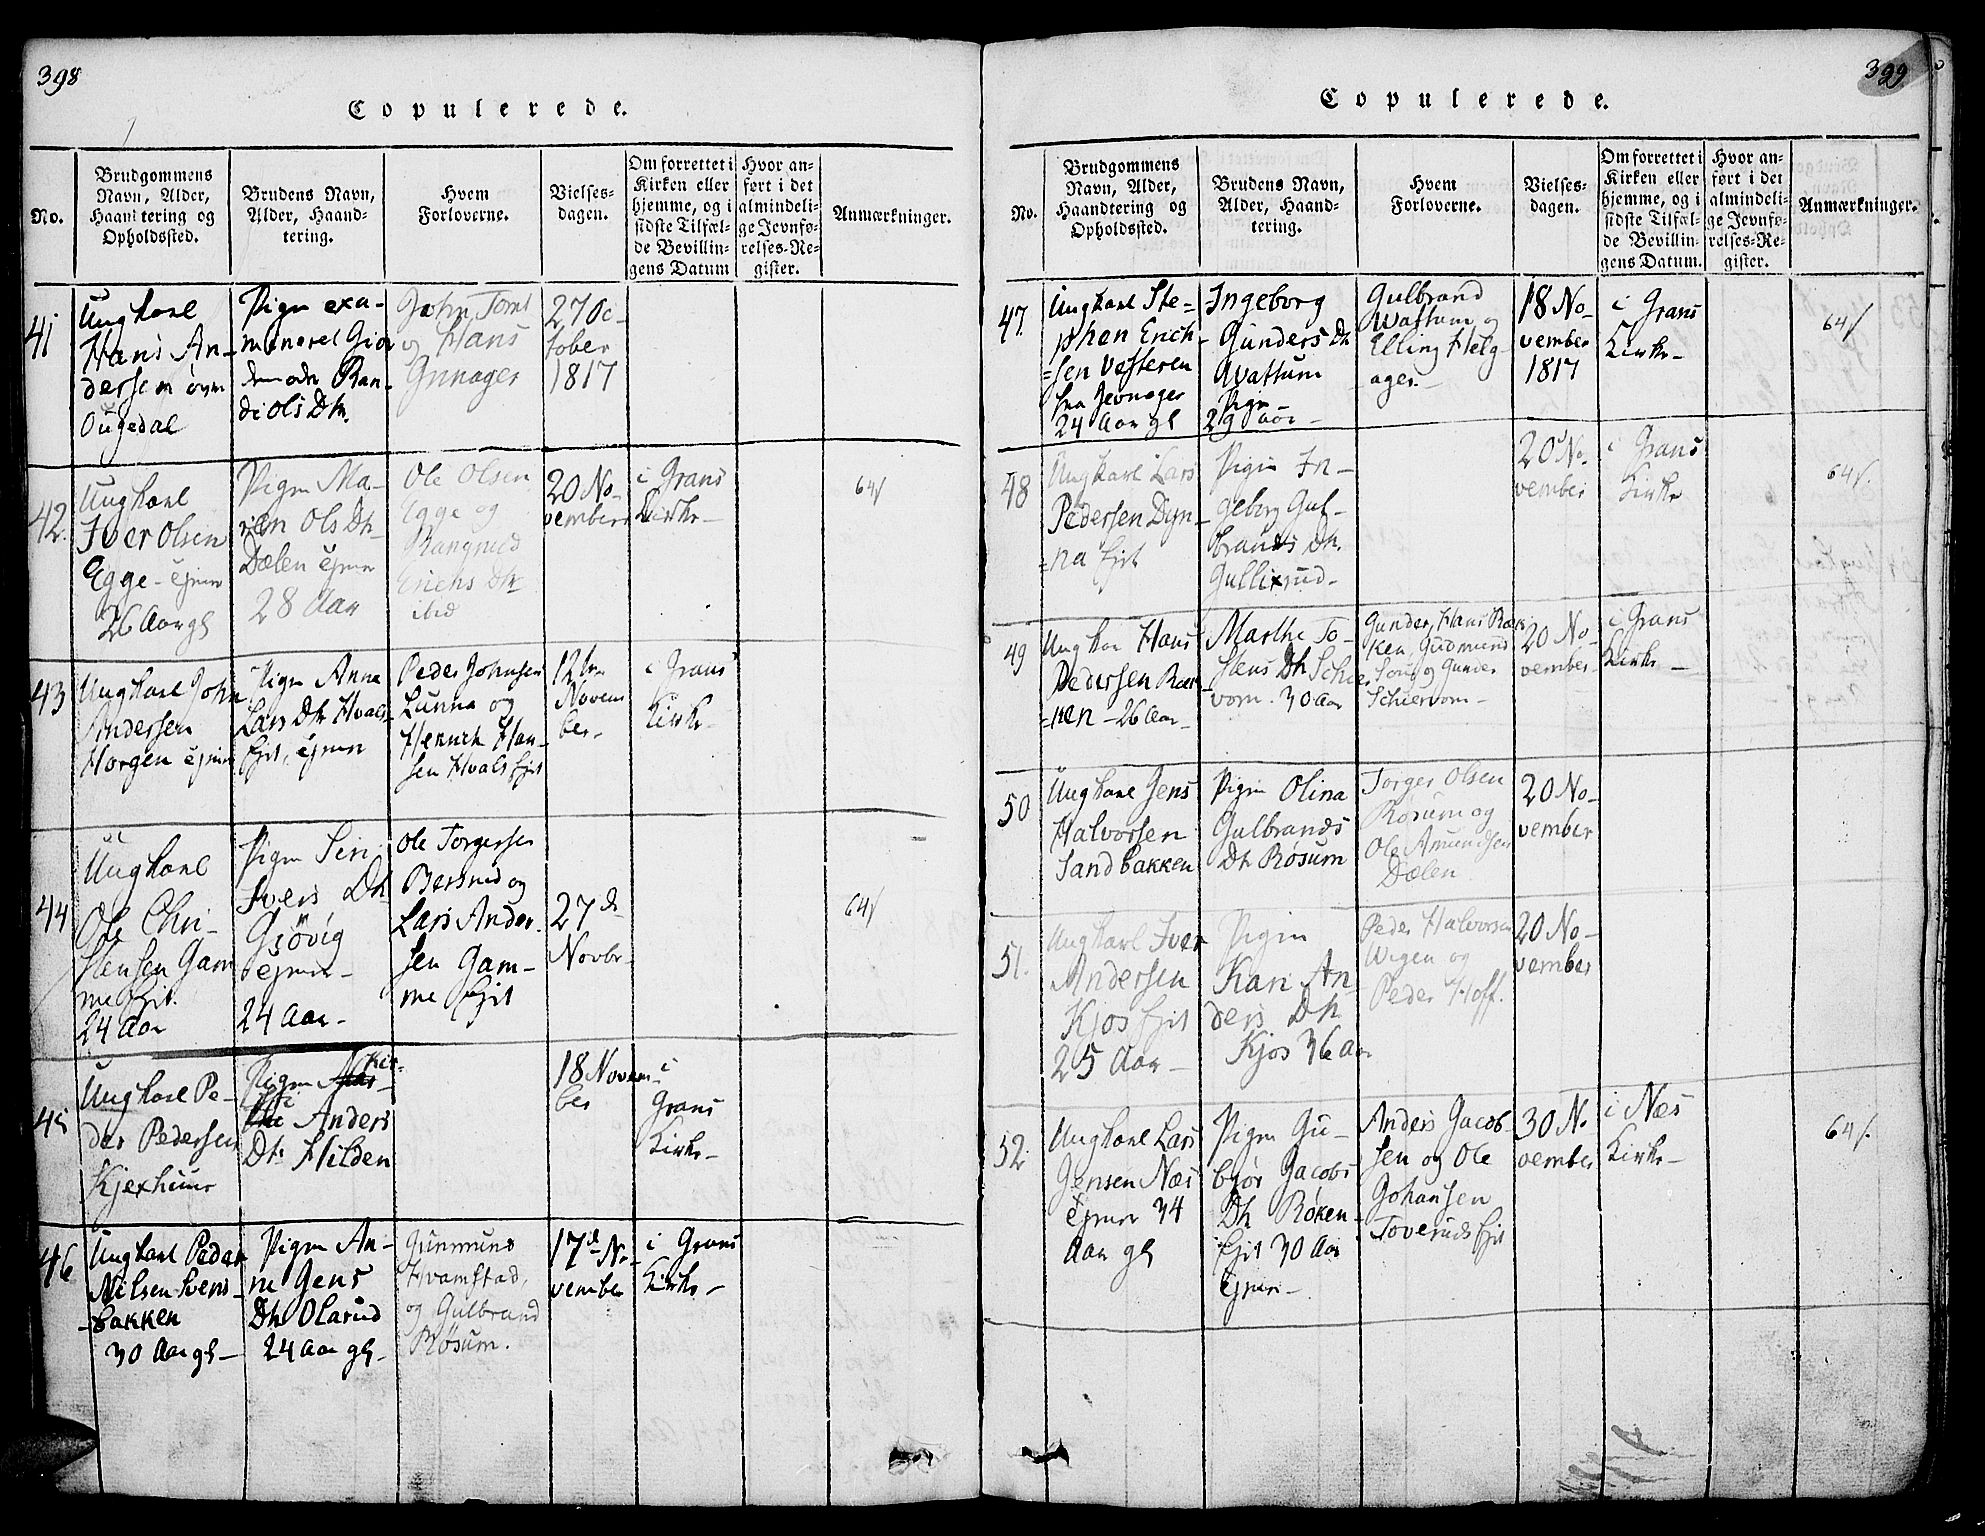 398
Copulerede.
No.
Brudgommens
Navn, Alder,
Haandtering og
Opholdssted.
Brudens Navn,
Alder, Haand=
tering.
Hvem
Forloverne.
Vielses=
dagen.
Om forrettet i
Kirken eller
hjemme, og i
sidste Tilfæl=
de Bevillin=
gens Datum
Hvor an=
ført i det
almindeli=
ge Jevnfø=
relses=Re=
gister.
Anmærkninger.
41
Ungkarl
Hans An-
dersen
Ougedal
Pigen exa-
Ran-
di Ols Dtr.
John
og Hans
Gunager
27 Oc-
tober
1817
42.
Ungkarl
Iver Olsen
Egge - Ejner
26 Aar gl
Pigen Ma-
ren Ols Dtr
Dælen Ejner
28 Aar
Ole Olsen
Egge og
Rangnild
Erichs Dtr
ibid
20 No-
vember
i Grans
Kirke-
64/
43
Ungkarl John
Andersen
Horgen Ejner
Pigen Anna
Lars Dtr Hvals
Ejet, Ejner
Peder Johnsen
Lunna og
Henrich Han-
sen Hvals Ejet
12te
Novem
ber-
i Grans
Kirke-
44
Ungkarl
Ole Chri-
stensen Gam
me Ejet.
24 Aar
Pigen Siri
Ivers Dtr
Gjøvig
Ejner-
24 Aar-
Ole Torgersen
Bersrud og
Lars Ander-
sen Gam-
me Ejet
27de
Novbr-
64/
45
Ungkarl Pe-
der Pedersen
Pigen
Anders
Dtr Hilden
18 Novem-
ber
i
Grans
Kirke-
46
Ungkarl Peder
Nilsen Svens-
bakken
30 Aar gl-
Pigen An-
ne Jens
Dtr Olarud
24 Aar gl-
Gunmund
Hvamstad,
og Gulbrand
Røsum.
17de No-
vember
i Grans
Kirke-
399
Copulerede.
No.
Brudgommens
Navn, Alder,
Haandtering og
Opholdssted.
Brudens Navn,
Alder, Haand=
tering.
Hvem
Forloverne.
Vielses=
dagen.
Om forrettet i
Kirken eller
hjemme, og i
sidste Tilfæl=
de Bevillin=
gens Datum.
Hvor an=
ført i det
almindeli=
ge Jevnfø=
relses=Re=
gister.
Anmærkninger.
47.
Ungkarl Ste-
phen Erich-
=sen Vesteren
fra Jevnager
24 Aar gl
Ingeborg
Gunders Dtr
Wattum
Pigen
29 Aar-
Gulbrand
Wattum og
Elling Helg-
ager.-
18 No-
vember
1817
i Grans
Kirke-
64/
48
Ungkarl Lars
Pedersen Dyn-
=na Ejet
Pigen In-
geborg Gul-
brands Dtr.
Gullixrud-
20 No-
vember
i Grans
Kirke
64/.
49
Ungkar Hans
Pedersen Ræk-
=ken - 26 Aar-
Marthe To-
stens Dtr Schier
vom. 30 Aar
Gunder, Hans Ræk
ken, Gudmund
og Gunder
Schiervom-
20 No-
vember-
i Grans
Kirke-
50
Ungkarl Jens
Halvorsen
Sandbakken
Pigen Olina
Gulbrands
Dtr Røsum
Torger Olsen
Røsum og
Ole Amundsen
Dælen
20 No-
vember
51.
Ungkarl Iver
Andersen
Kjos Ejet
25 Aar-
Pigen
Kari An-
ders Dtr
Kjos 36 Aar
Peder Halvorsen
Wigen og
Peder Hoff.
20 No-
vember
52
Ungkarl Lars
Jensen Næs
Ejner 34
Aar gl
Pigen Gu-
bjør Jacobs
Dtr Røken-
Ejet 30 Aar
Ejner-
Anders Jacob-
sen og Ole
Johansen
Toveruds Ejet
30 No-
vember
i Næs
Kirke-
64/.